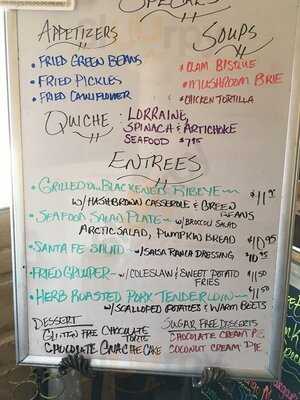 SPECIALS
APPETIZERS
• FRIED GREEN BEANS
• FRIED PICKLES
• FRIED CAULIFLOWER
SOUPS
• CLAM BISQUE
• MUSHROOM BRIE
• CHICKEN TORTILLA
QUICHE : LORRAINE,
SPINACH & ARTICHOKE
SEAFOOD $7.95
ENTREES
• GRILLED OR BLACKENED RIBEYE~
W/ HASHBROWN CASSEROLE & GREEN BEANS
• SEAFOOD SALAD PLATE ~ W/ BROCCOLI SALAD
ARCTIC SALAD, PUMPKIN BREAD $10.95
• SANTA FE SALAD ~ W/ SALSA RANCH DRESSING $10.95
• FRIED GROUPER ~ W/ COLESLAW & SWEET POTATO FRIES $11.50
• HERB ROASTED PORK TENDERLOIN ~ $11.50
W/ SCALLOPED POTATOES & WARM BEETS
DESSERT
GLUTTEN FREE CHOCOLATE TORTE
CHOCOLATE GANACHE CAKE
SUGAR FREE DESSERTS
CHOCOLATE CREAM PIE
COCONUT CREAM PIE